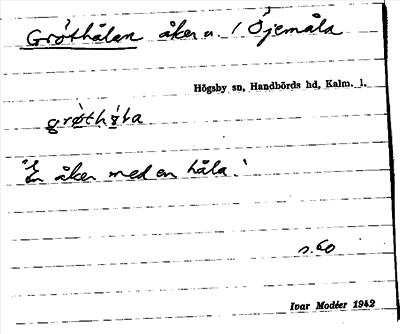 Gröthålan åker n. i Öjemåla
Högsby sn, Handbörds hd, Kalm. l.
grøth
"En åker med en håla."
s. 60
Ivar Modéer 1942